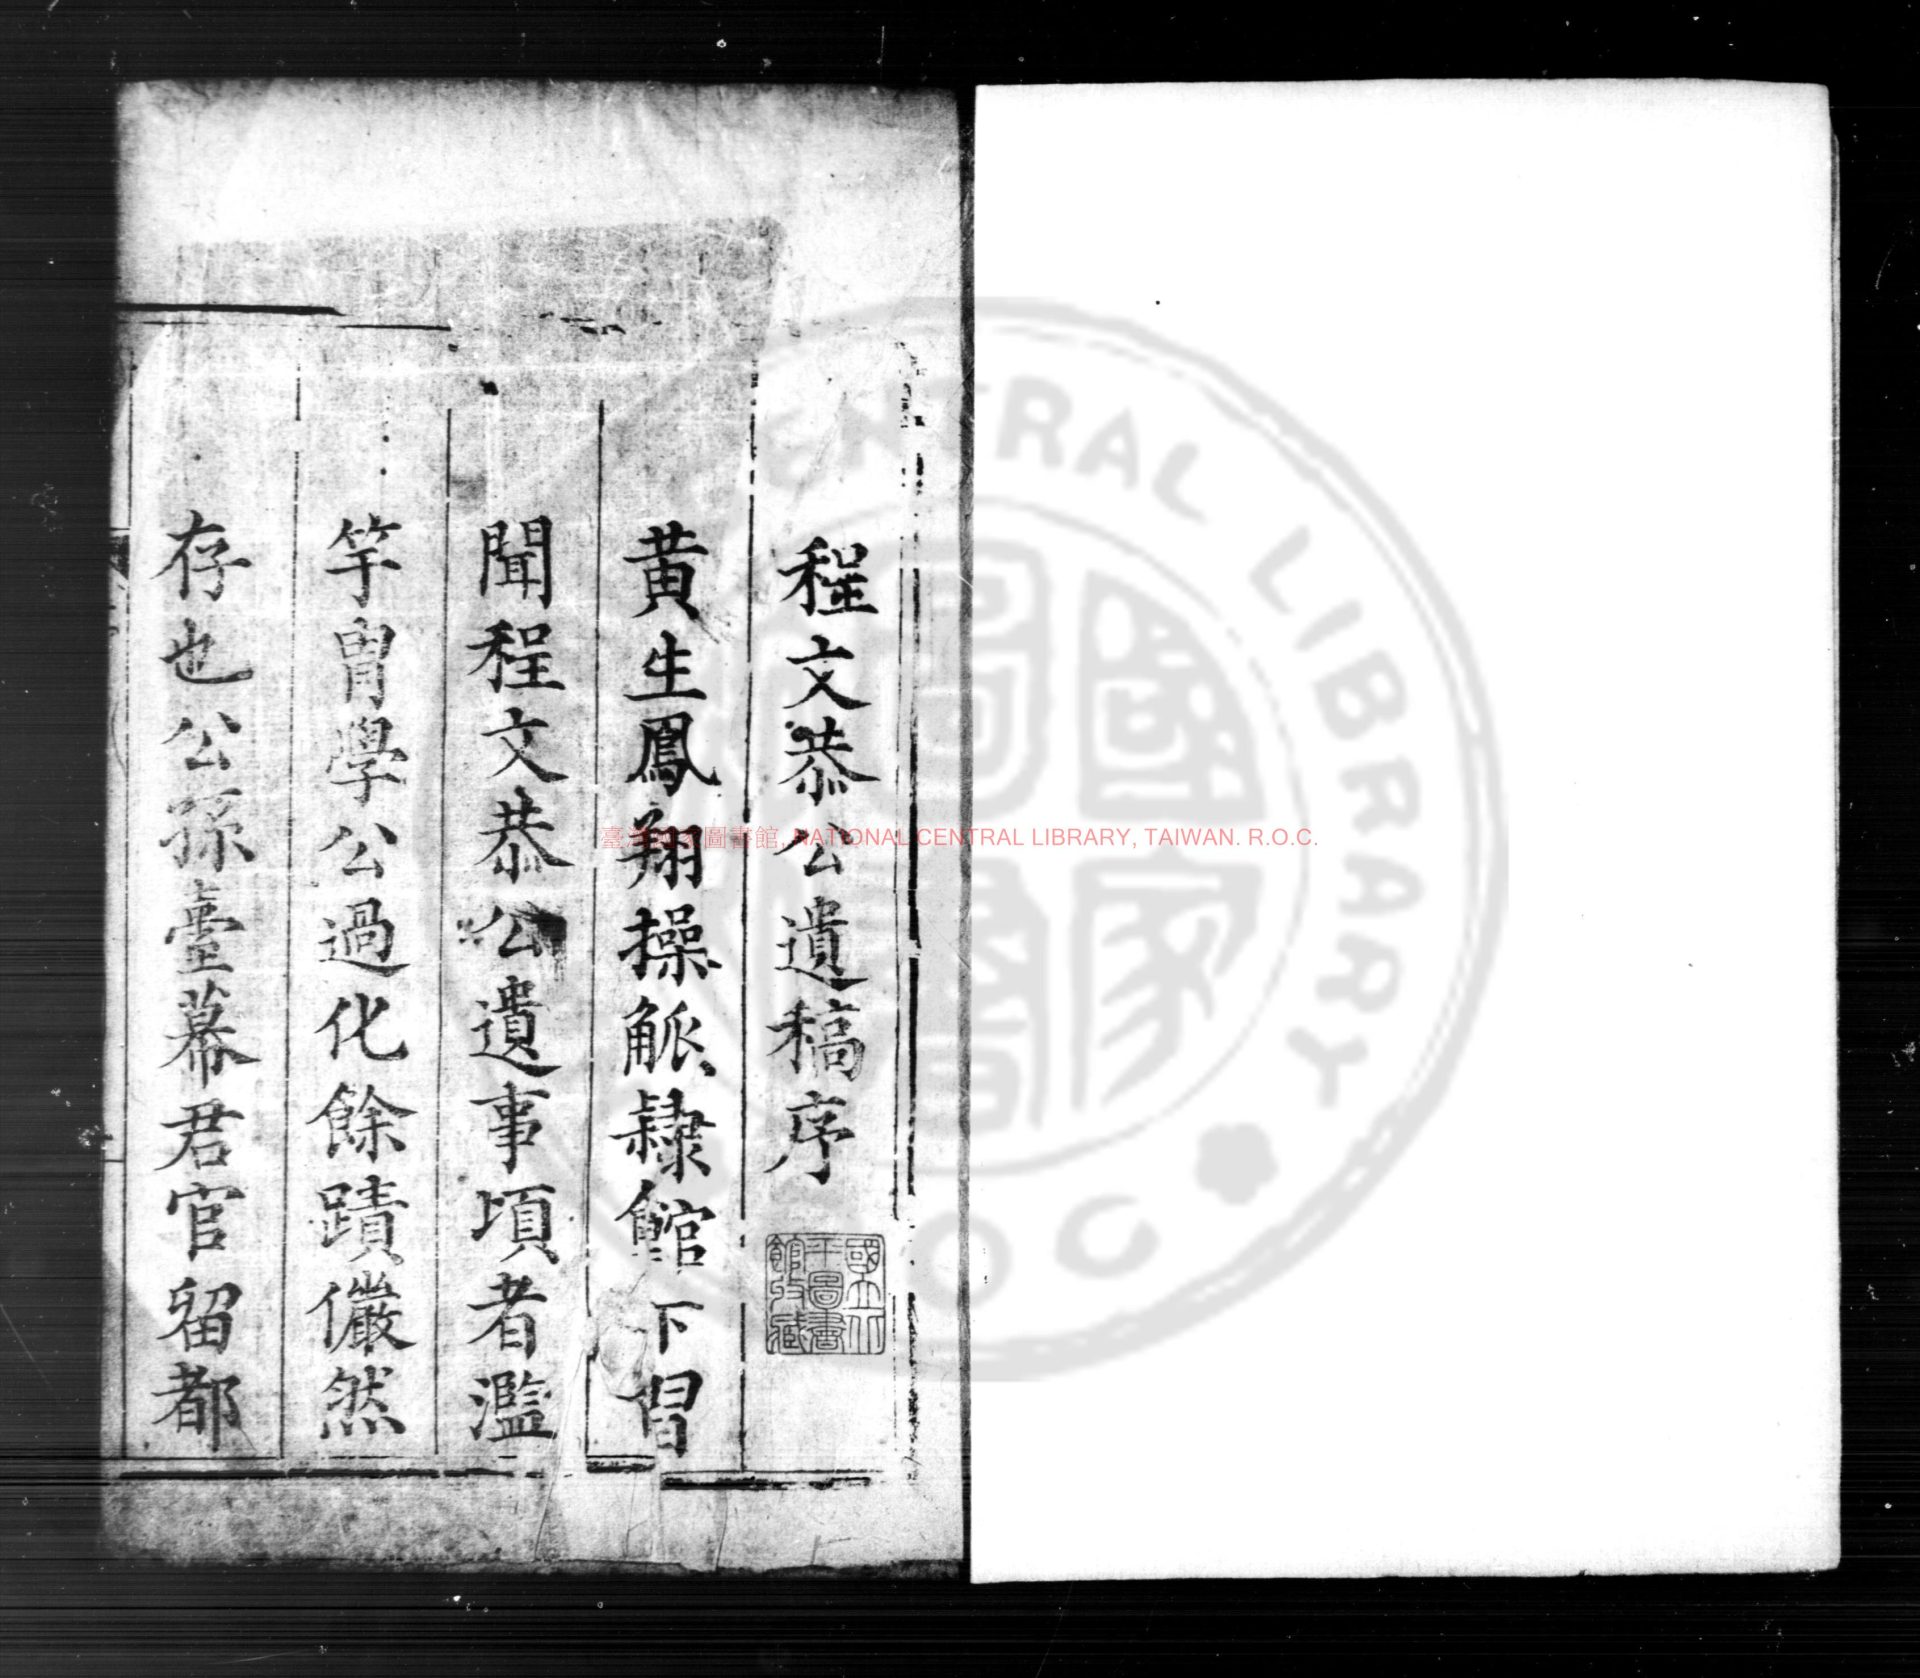 程文恭公遺稿序
黃生鳳翔操觚隷館下冒
聞程文恭公遺事頃者濫
竽胄學公過化餘蹟儼然
存也公孫臺幕君官留都
國立北
平圖書
館收藏
臺灣國家圖書館, NATIONAL CENTRAL LIBRARY, TAIWAN. R.O.C.
CENTRAL LIBRARY
R.O.C.
國家
圖書